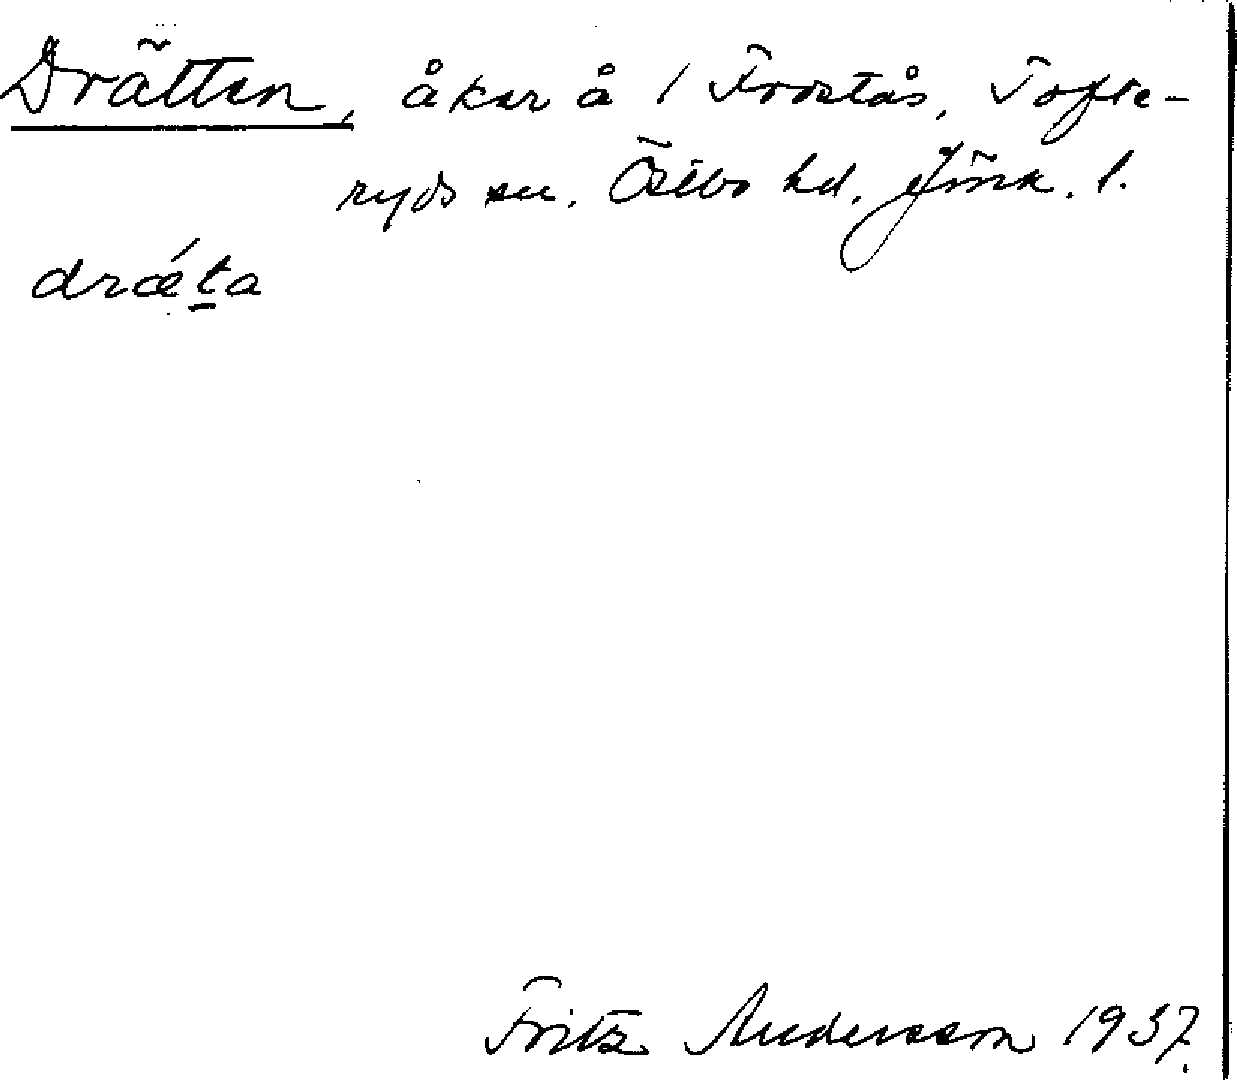 Drätten, åker å 1 Frostås, Tofte-
ryds sn. Östbo hd. Jönk. l.
dræ´ta
Fritz Andersson 1937.